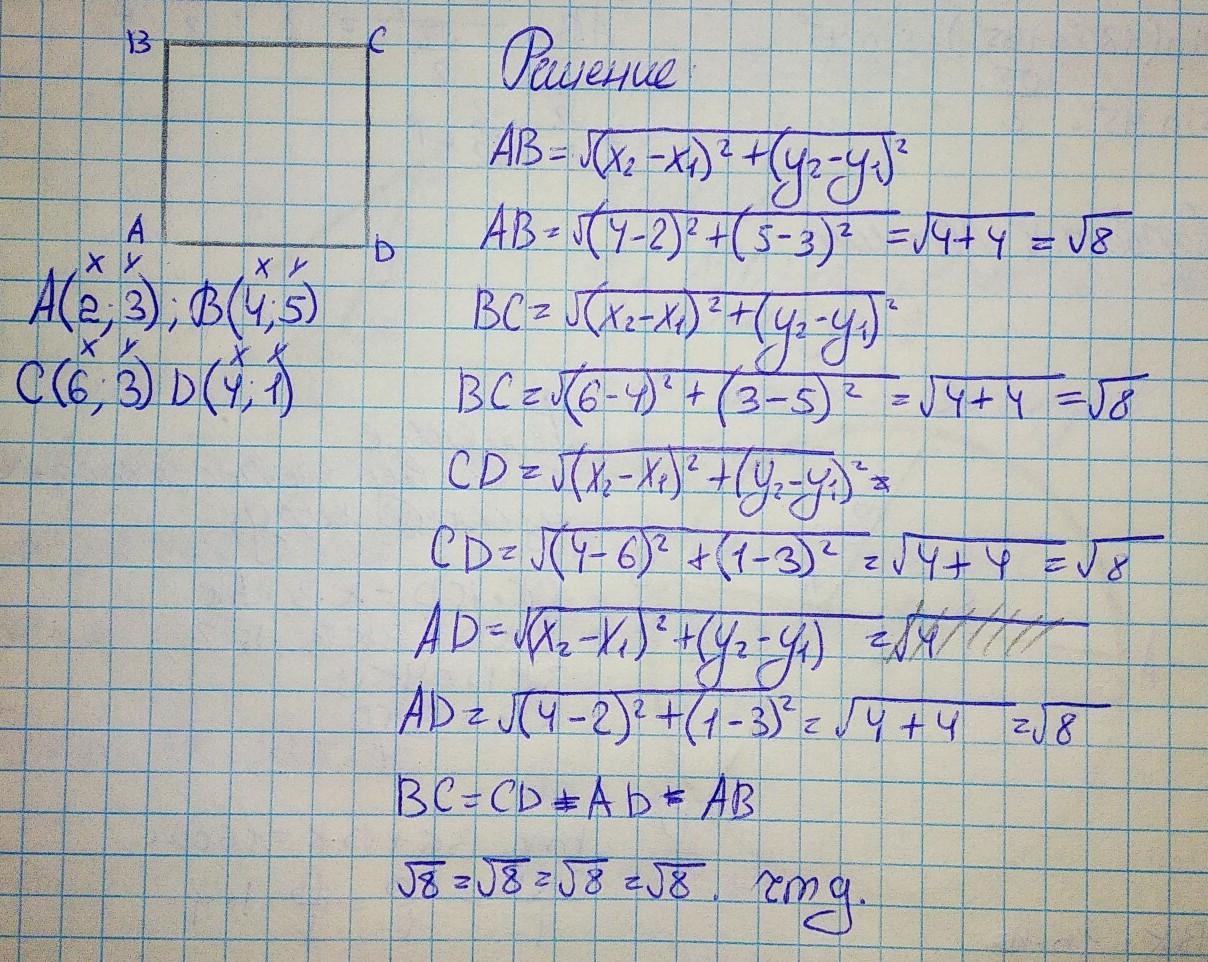 B C
A D
x y x y
A(2; 3); B(4; 5)
x y x y
C(6; 3) D(4; 1)
Решение
AB = √(x₂-x₁)² + (y₂-y₁)²
AB = √(4-2)² + (5-3)² = √4+4 = √8
BC = √(x₂-x₁)² + (y₂-y₁)²
BC = √(6-4)² + (3-5)² = √4+4 = √8
CD = √(x₂-x₁)² + (y₂-y₁)² =
CD = √(4-6)² + (1-3)² = √4+4 = √8
AD = √(x₂-x₁)² + (y₂-y₁) = √4
AD = √(4-2)² + (1-3)² = √4+4 = √8
BC = CD = AD = AB
√8 = √8 = √8 = √8. чтд.